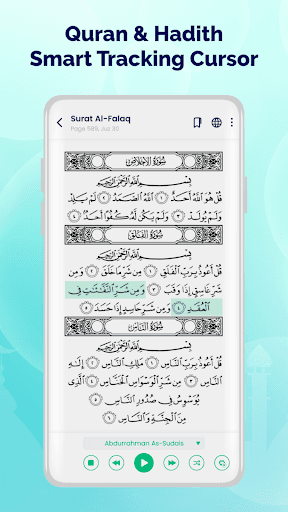 Quran & Hadith
Smart Tracking Cursor
Surat Al-Falaq
Page 589, Juz 30
سُورَةُ الإِخْلَاصِ
بِسْمِ اللَّهِ الرَّحْمَٰنِ الرَّحِيمِ
قُلْ هُوَ اللَّهُ أَحَدٌ ١ اللَّهُ الصَّمَدُ ٢ لَمْ يَلِدْ
وَلَمْ يُولَدْ ٣ وَلَمْ يَكُن لَّهُ كُفُوًا أَحَدٌ ٤
سُورَةُ الْفَلَقِ
بِسْمِ اللَّهِ الرَّحْمَٰنِ الرَّحِيمِ
قُلْ أَعُوذُ بِرَبِّ الْفَلَقِ ١ مِن شَرِّ مَا خَلَقَ ٢ وَمِن
شَرِّ غَاسِقٍ إِذَا وَقَبَ ٣ وَمِن شَرِّ النَّفَّاثَاتِ فِي
الْعُقَدِ ٤ وَمِن شَرِّ حَاسِدٍ إِذَا حَسَدَ ٥
سُورَةُ النَّاسِ
بِسْمِ اللَّهِ الرَّحْمَٰنِ الرَّحِيمِ
قُلْ أَعُوذُ بِرَبِّ النَّاسِ ١ مَلِكِ النَّاسِ ٢ إِلَٰهِ
النَّاسِ ٣ مِن شَرِّ الْوَسْوَاسِ الْخَنَّاسِ ٤ الَّذِي
يُوَسْوِسُ فِي صُدُورِ النَّاسِ ٥
مِنَ الْجِنَّةِ وَالنَّاسِ ٦
Abdurrahman As-Sudais